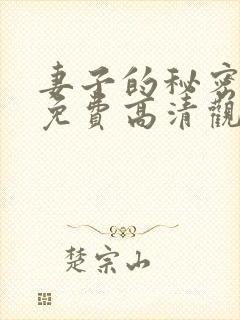 妻子的秘密
免費高清觀
楚宗山